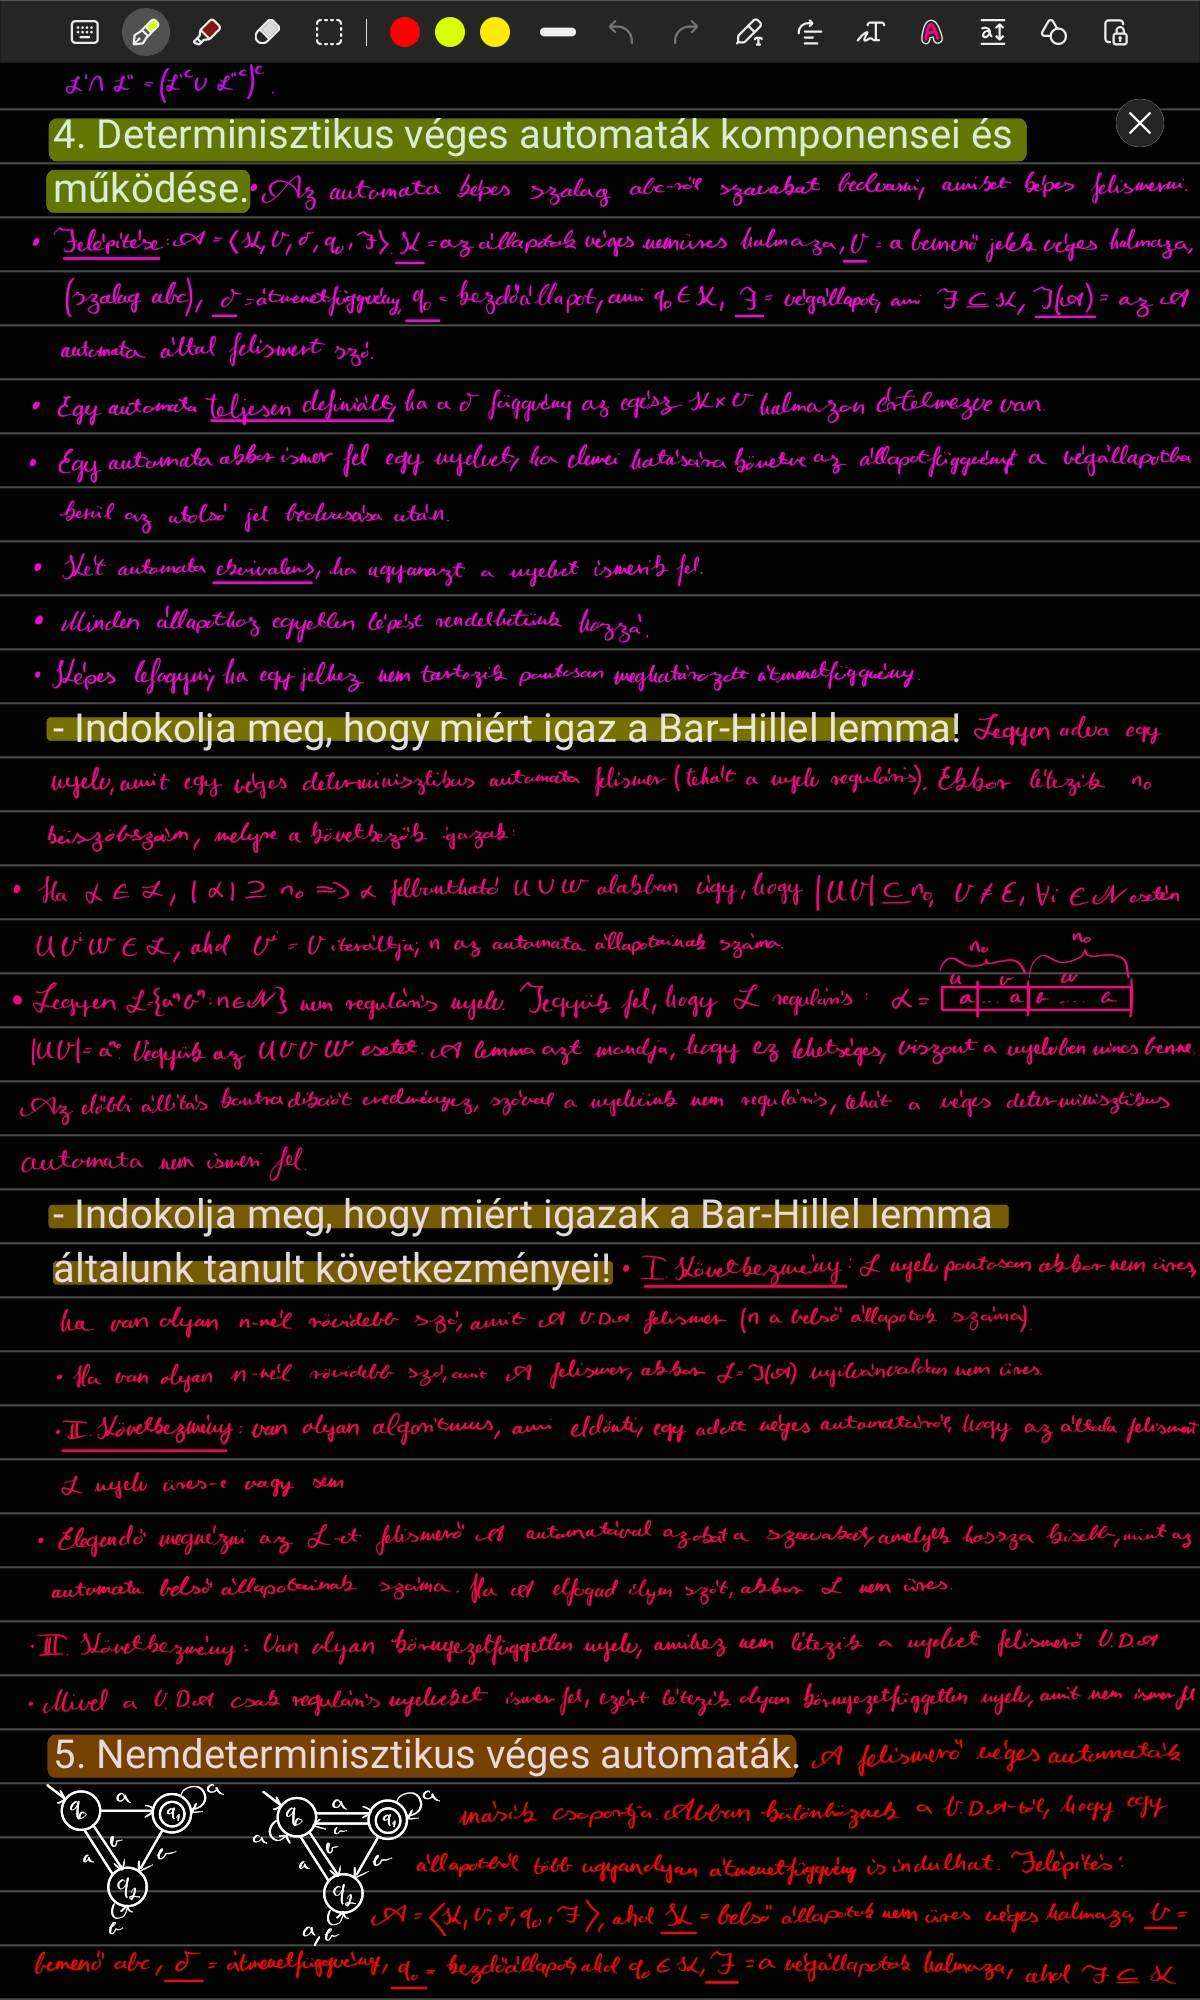 L'∩ L'' = (L'ᶜ ∪ L''ᶜ)ᶜ.
4. Determinisztikus véges automaták komponensei és
működése. • Az automata képes szalag abc-ről szavakat beolvasni, amiket képes felismerni.
• Felépítése: A = ⟨K, V, δ, q₀, F⟩. K = az állapotok véges nemüres halmaza, V = a bemenő jelek véges halmaza,
(szalag abc), δ = átmenetfüggvény, q₀ = kezdőállapot, ami q₀ ∈ K, F = végállapot, ami F ⊆ K, T(A) = az A
automata által felismert szó.
• Egy automata teljesen definiált, ha a δ függvény az egész K×V halmazon értelmezve van.
• Egy automata akkor ismer fel egy nyelvet, ha elemei hatására követve az állapotfüggvényt a végállapotba
kerül az utolsó jel beolvasása után.
• Két automata ekvivalens, ha ugyanazt a nyelvet ismerik fel.
• Minden állapothoz egyetlen lépést rendelhetünk hozzá.
• Képes lefagyni, ha egy jelhez nem tartozik pontosan meghatározott átmenetfüggvény.
- Indokolja meg, hogy miért igaz a Bar-Hillel lemma! Legyen adva egy
nyelv, amit egy véges determinisztikus automata felismer (tehát a nyelv reguláris). Ekkor létezik n₀
küszöbszám, melyre a következők igazak:
• Ha α ∈ L, |α| ≥ n₀ => α felbontható UVW alakban úgy, hogy |UV| ⊆ n₀, V ≠ ε, ∀i ∈ N esetén
UVⁱW ∈ L, ahol Vⁱ = V iteráltja, n az automata állapotainak száma.
n₀ n₀
u v w
• Legyen L{aⁿbⁿ: n∈N} nem reguláris nyelv. Tegyük fel, hogy L reguláris: α = a ... a b ... a
|UV| = aⁿ. Vegyük az UVVW esetet. A lemma azt mondja, hogy ez lehetséges, viszont a nyelvben nincs benne.
Az előbbi állítás kontradikciót eredményez, szóval a nyelvünk nem reguláris, tehát a véges determinisztikus
automata nem ismeri fel.
- Indokolja meg, hogy miért igazak a Bar-Hillel lemma
általunk tanult következményei! • I. Következmény: L nyelv pontosan akkor nem üres,
ha van olyan n-nél rövidebb szó, amit A V.D.A felismer (n a belső állapotok száma).
• Ha van olyan n-nél rövidebb szó, amit A felismer, akkor L=T(A) nyilvánvalóan nem üres.
• II. Következmény: van olyan algoritmus, ami eldönti, egy adott véges automatáról, hogy az általa felismert
L nyelv üres-e vagy sem
• Elegendő megnézni az L-et felismerő A automatával azokat a szavakat, amelyek hossza kisebb, mint az
automata belső állapotainak száma. Ha A elfogad ilyen szót, akkor L nem üres.
• III. Következmény: Van olyan környezetfüggetlen nyelv, amihez nem létezik a nyelvet felismerő V.D.A
• Mivel a V.D.A csak reguláris nyelveket ismer fel, ezért létezik olyan környezetfüggetlen nyelv, amit nem ismer fel
5. Nemdeterminisztikus véges automaták. A felismerő véges automaták
q₀ a q₁ a b a b q₂ b
q₀ a q₁ a b a a b b q₂ a,b
másik csoportja. Abban különböznek a V.D.A-tól, hogy egy
állapotból több ugyanolyan átmenetfüggvény is indulhat. Felépítés:
A = ⟨K, V, δ, q₀, F⟩, ahol K = belső állapotok nem üres véges halmaza, V =
bemenő abc, δ = átmenetfüggvény, q₀ = kezdőállapot, ahol q₀ ∈ K, F = a végállapotok halmaza, ahol F ⊆ K